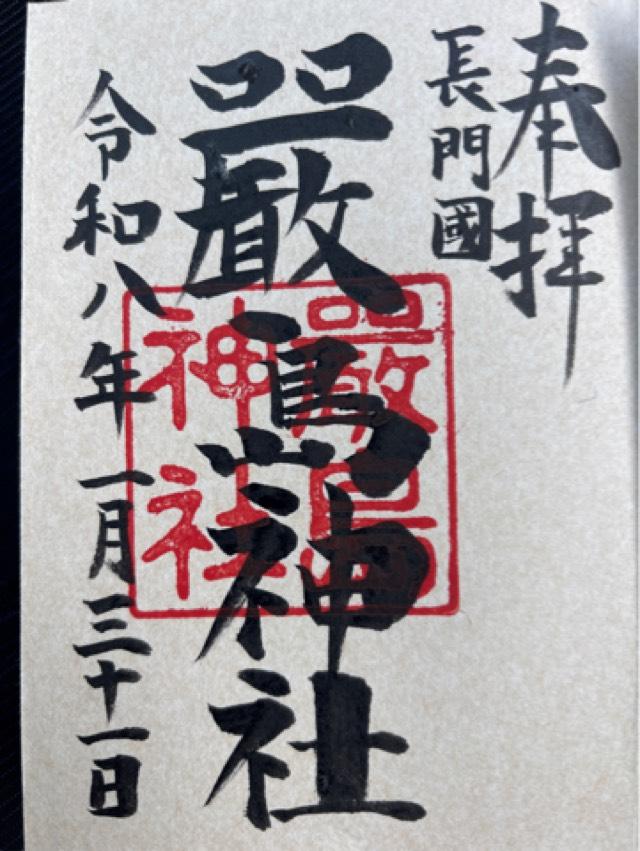 奉拝
長門國
嚴嶋神社
嚴島
神社
令和八年一月三十一日